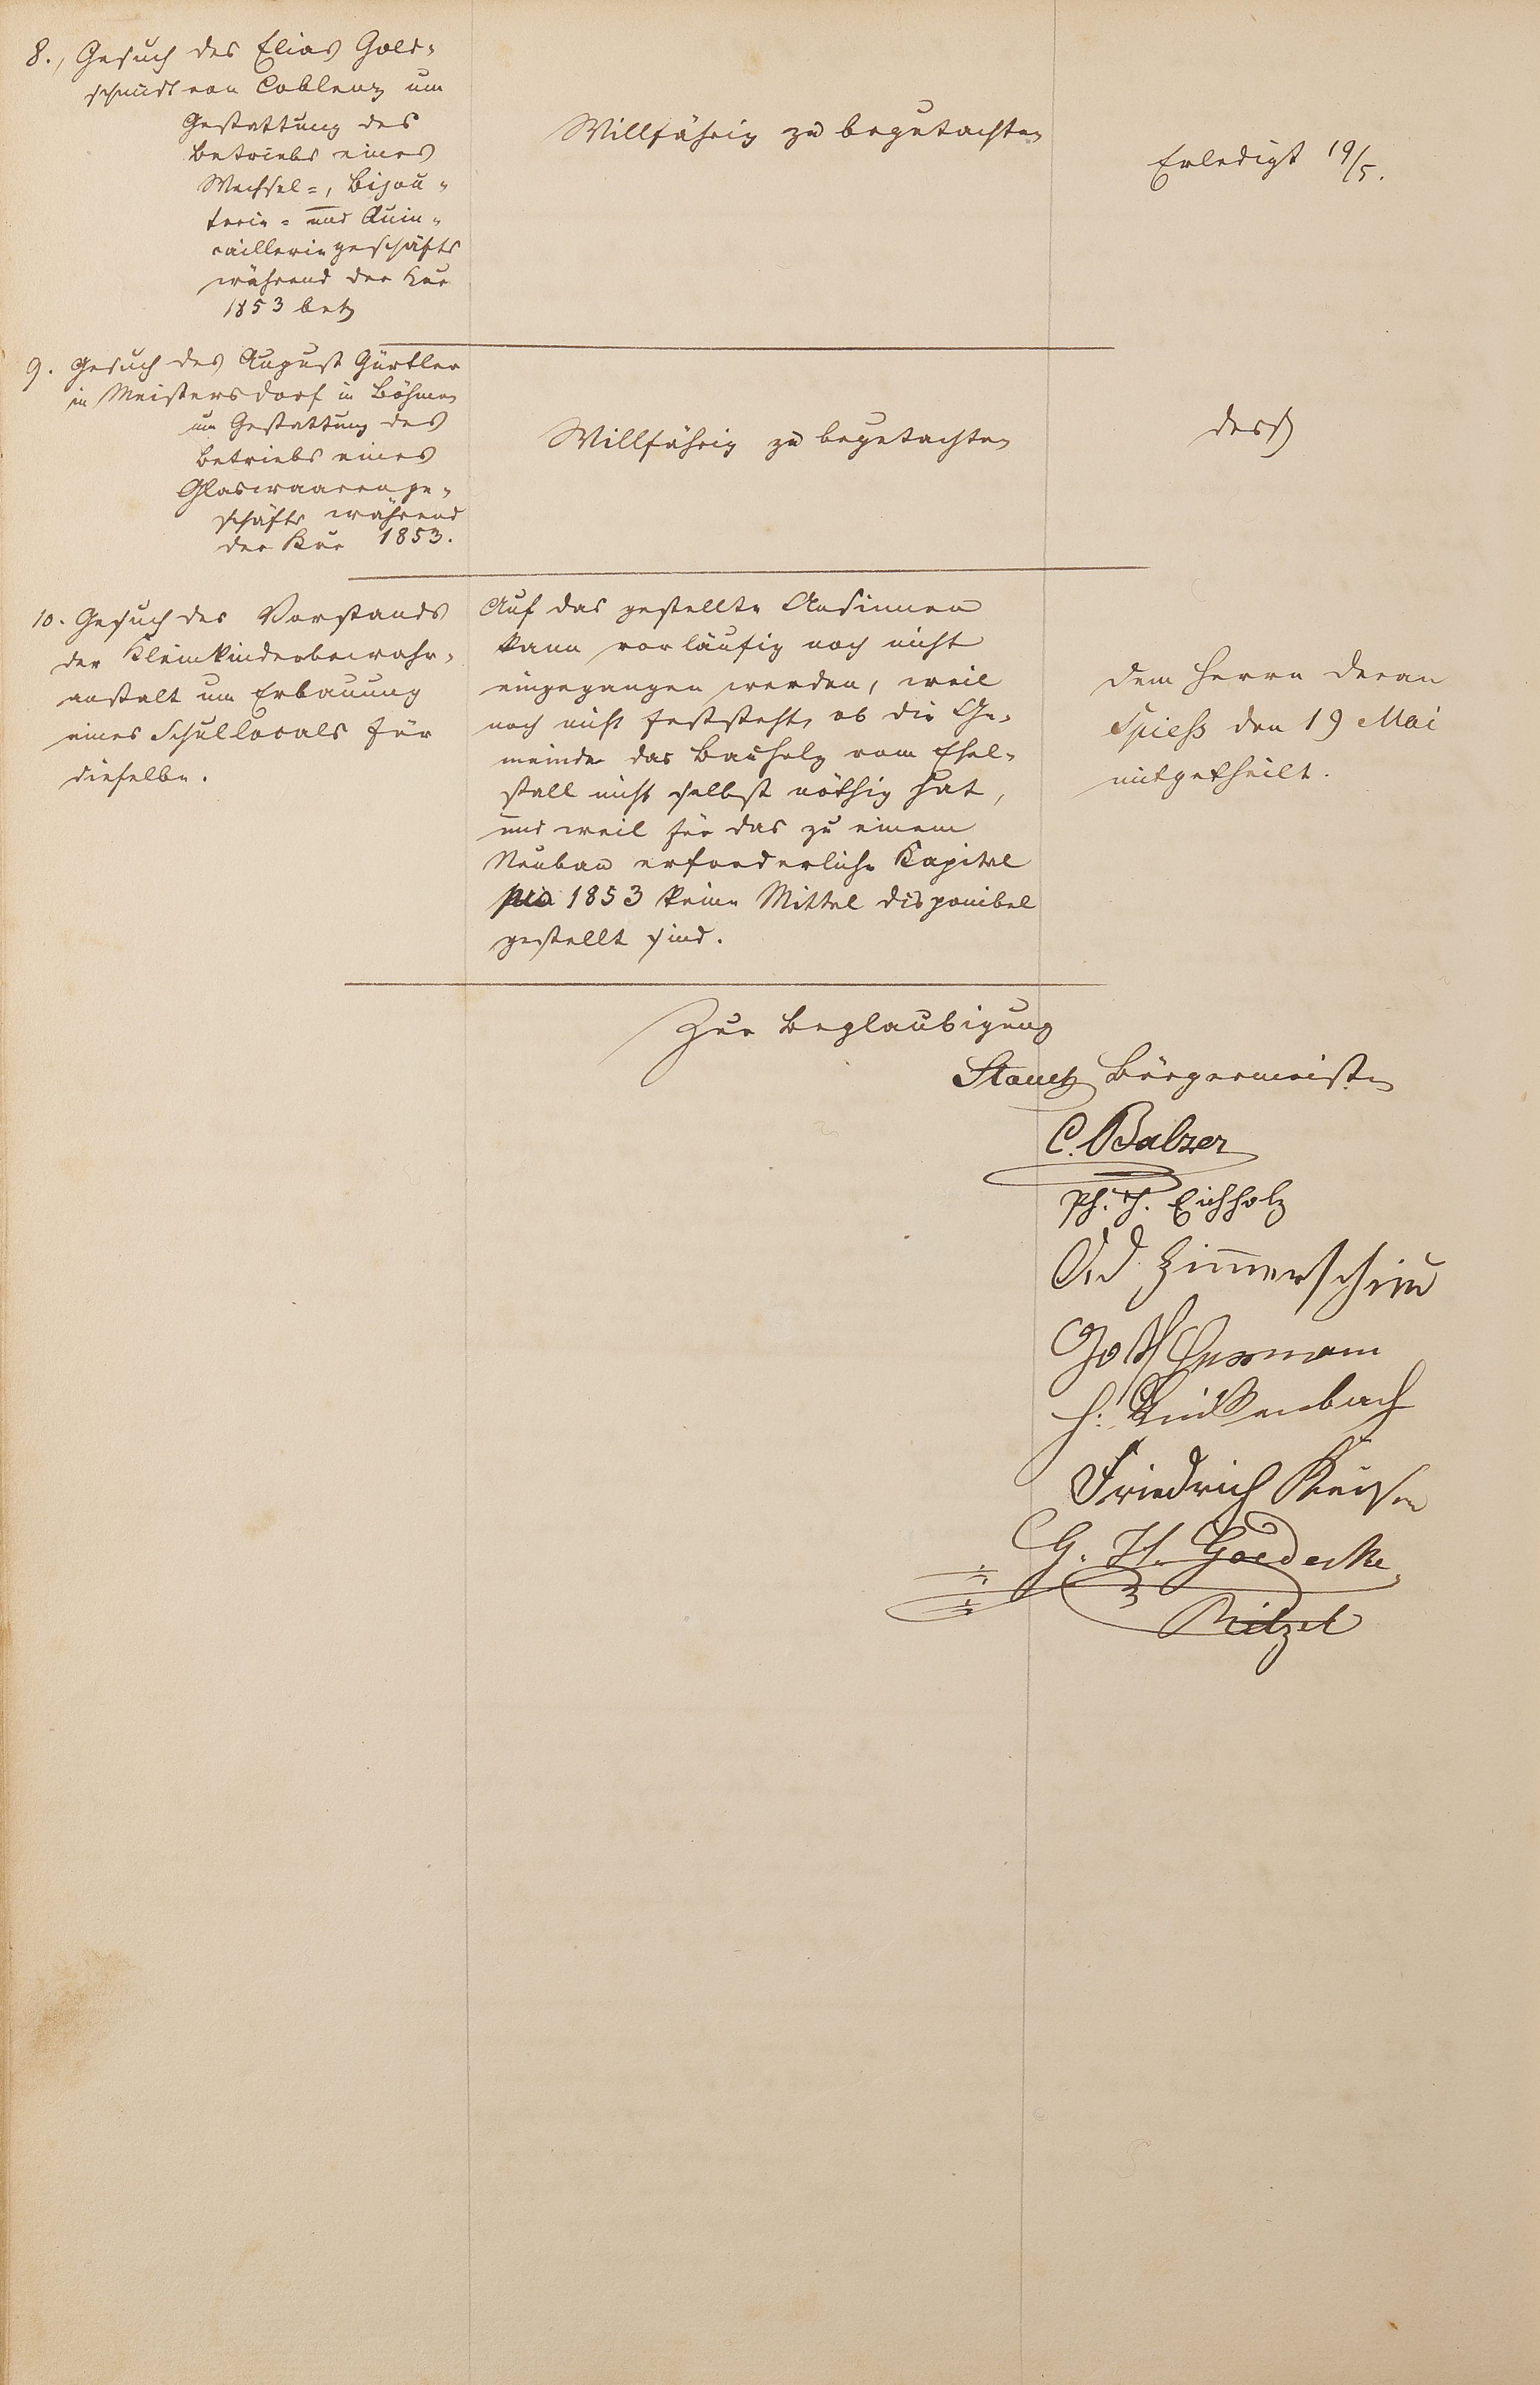 8., Gesuch des Elias Gold-
schmidt von Coblenz um
Gestattung des
Betriebs eines
Wechsel-, Bijou-
terie- und Quin-
cailleriegeschäfts
während der Kur
1853 betr
Willfährig zu begutachten
Erledigt 19/5.
9. Gesuch des August Gürtler
in Meistersdorf in Böhmen
um Gestattung des
Betriebs eines
Glaswaarenge-
schäfts während
der Kur 1853.
Willfährig zu begutachten
10. Gesuch des Vorstands
der Kleinkinderbewahr-
anstalt um Erbauung
eines Schullocals für
dieselbe.
Auf das gestellte Ansinnen
kann vorläufig noch nicht
eingegangen werden, weil
noch nicht feststeht, ob die Ge-
meinde das Bauholz vom Esel-
stall nicht selbst nöthig hat,
und weil für das zu einem
Neubau erforderliche Kapital
pro 1853 keine Mittel disponibel
gestellt sind.
Dem Herrn Decan
Spieß den 19 Mai
mitgetheilt.
Zur Beglaubigung
Bürgermeister
C. Balzer
Ph. H. Eichholz
Ad Zimmerschied
Goth Hermann
H. Reußenbach
Friedrich Kaiser
G. H. Goedecke
Ritzel